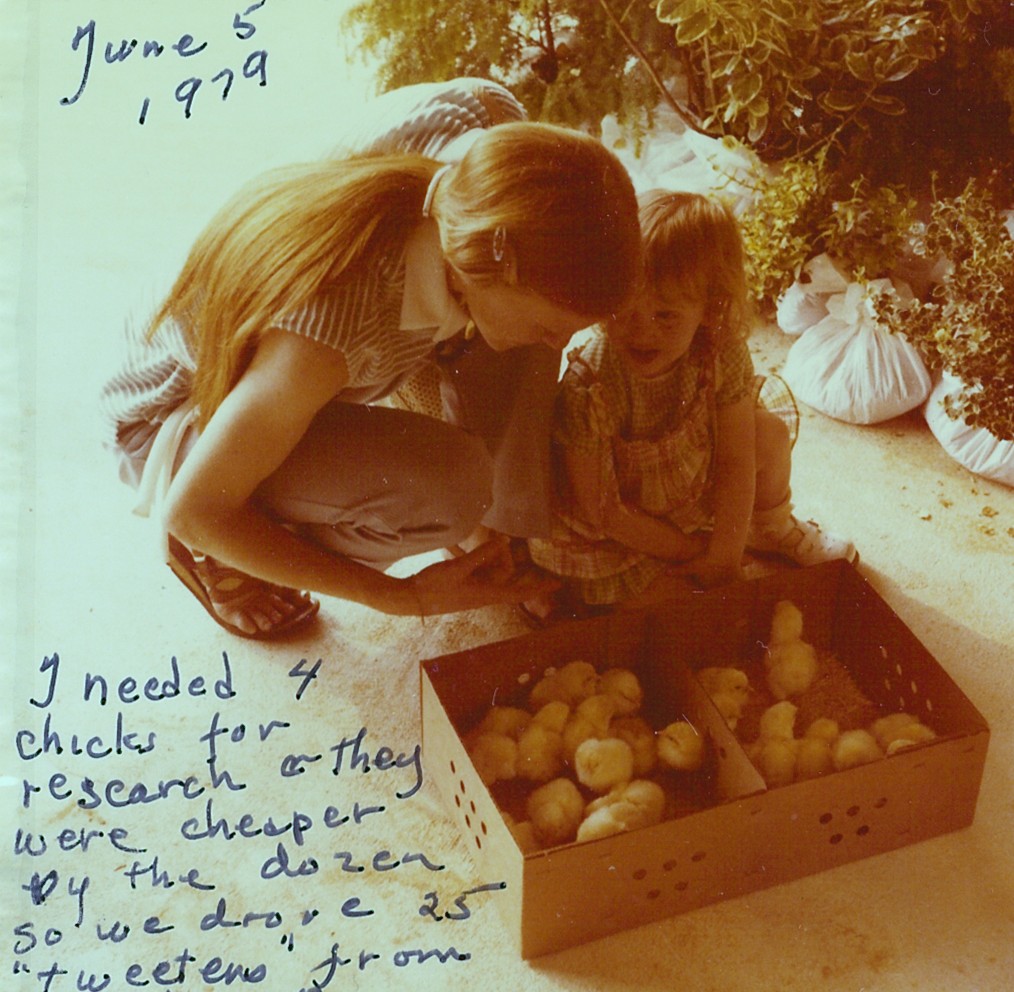 June 5
1979
I needed 4
chicks for
research & they
were cheaper
by the dozen
so we drove 25
"tweetens" from